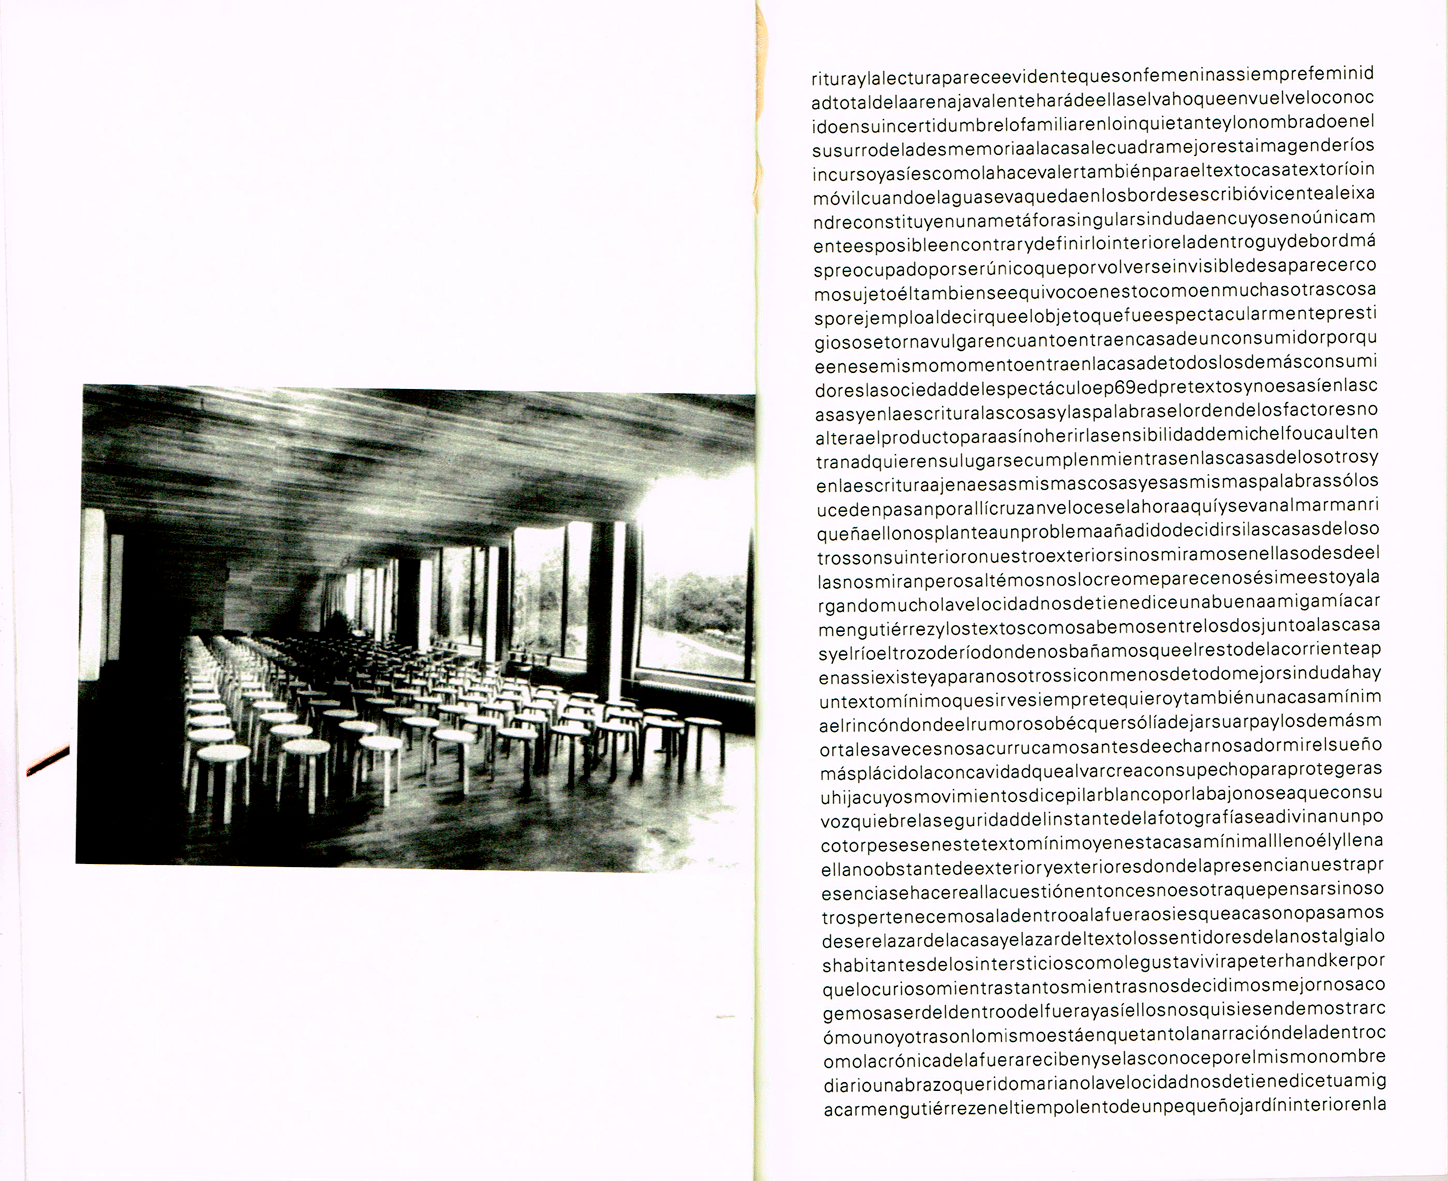 rituraylalecturapareceevidentequesonfemeninassiemprefeminid
adtotaldelaarenajavalenteharádeellaselvahoqueenvuelveloconoc
idoensuincertidumbrelofamiliarenloinquietanteylonombradoenel
susurrodeladesmemoriaalacasalecuadramejorestaimagenderíos
incursoyasíescomolahacevalertambiénparaeltextocasatextoríoin
móvilcuandoelaguasevaquedaenlosbordesescribióvicentealeixa
ndreconstituyenunametáforasingularsindudaencuyosenoúnicam
enteesposibleencontrarydefinirlointerioreladentroguydebordmá
spreocupadoporserúnicoqueporvolverseinvisibledesaparecerco
mosujetoéltambienseequivocoenestocomoenmuchasotrascosa
sporejemploaldecirqueelobjetoquefueespectacularmenteprestі
giososetornavulgarencuantoentraencasadeunconsumidorporqu
eenesemismomomentoentraenlacasadetodoslosdemásconsumi
doreslasociedaddelespectáculoep69edpretextosynoesasíenlasc
asasyenlaescrituralascosasylaspalabraselordendelosfactoresno
alteraelproductoparaasínoherirlasensibilidaddemichelfoucaulten
tranadquierensulugarsecumplenmientrasenlascasasdelosotrosy
enlaescrituraajenaesasmismascosasyesasmismaspalabrassólos
ucedenpasanporallícruzanveloceselahoraaquíysevanalmarmanri
queñaellonosplanteaunproblemaañadidodecidirsilascasasdeloso
trossonsuinterioronuestroexteriorsinosmiramosenellasodesdeel
lasnosmiranperosaltémosnoslocreomeparecenosésimeestoyala
rgandomucholavelocidadnosdetienediceunabuenaamigamíacar
mengutiérrezylostextoscomosabemosentrelosdosjuntoalascasa
syelríoeltrozoderíodondenosbañamosqueelrestodelacorrienteap
enassiexisteyaparanosotrossiconmenosdetodomejorsindudahay
untextomínimoquesirvesiempretequieroytambiénunacasamínim
aelrincóndondeelrumorosobécquersólíadejarsuarpaylosdemásm
ortalesavecesnosacurrucamosantesdeecharnosadormirelsueño
másplácidolaconcavidadquealvarcreaconsupechoparaprotegeras
uhijacuyosmovimientosdicepilarblancoporlabajonoseaqueconsu
vozquiebrelaseguridaddelinstantedelafotografíaseadivinanunpo
cotorpesesenestetextomínimoyenestacasamínimallenoélyllena
ellanoobstantedeexterioryexterioresdondelapresencianuestrapr
esenciasehacereallacuestiónentoncesnoesotraquepensarsinoso
trospertenecemosaladentrooalafueraosiesqueacasonopasamos
deserelazardelacasayelazardeltextolossentidoresdelanostalgialo
shabitantesdelosintersticioscomolegustavivirapeterhandkerpor
quelocuriosomientrastantosmientrasnosdecidimosmejornosaco
gemosaserdeldentroodelfuerayasíellosnosquisiesendemostrarc
ómounoyotrasonlomismoestáenquetantolanarracióndeladentroc
omolacrónicadelafuerarecibenyselasconoceporelmismonombre
diariounabrazoqueridomarianolavelocidadnosdetienedicetuamig
acarmengutiérrezeneltiempolentodeunpequeñojardíninteriorenla